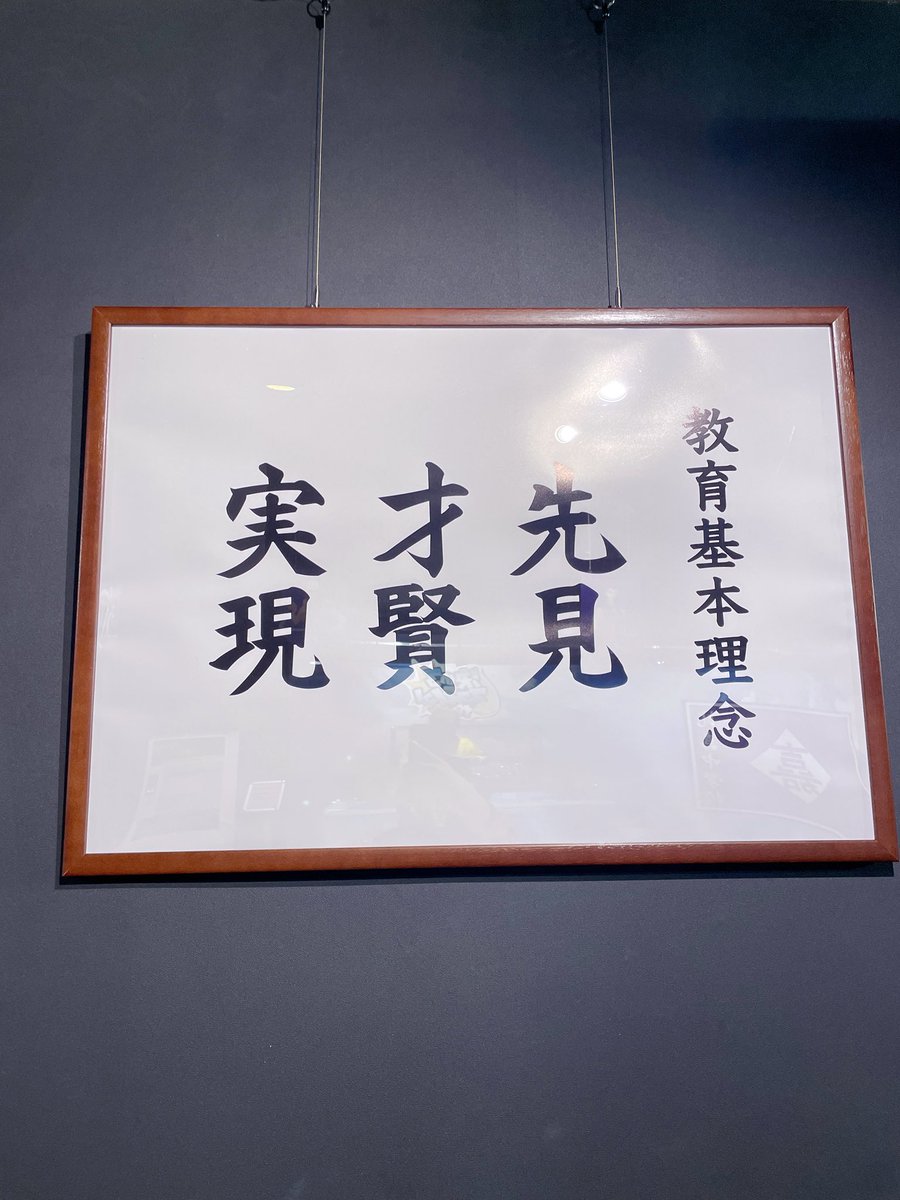 教育基本理念
先見
才賢
実現